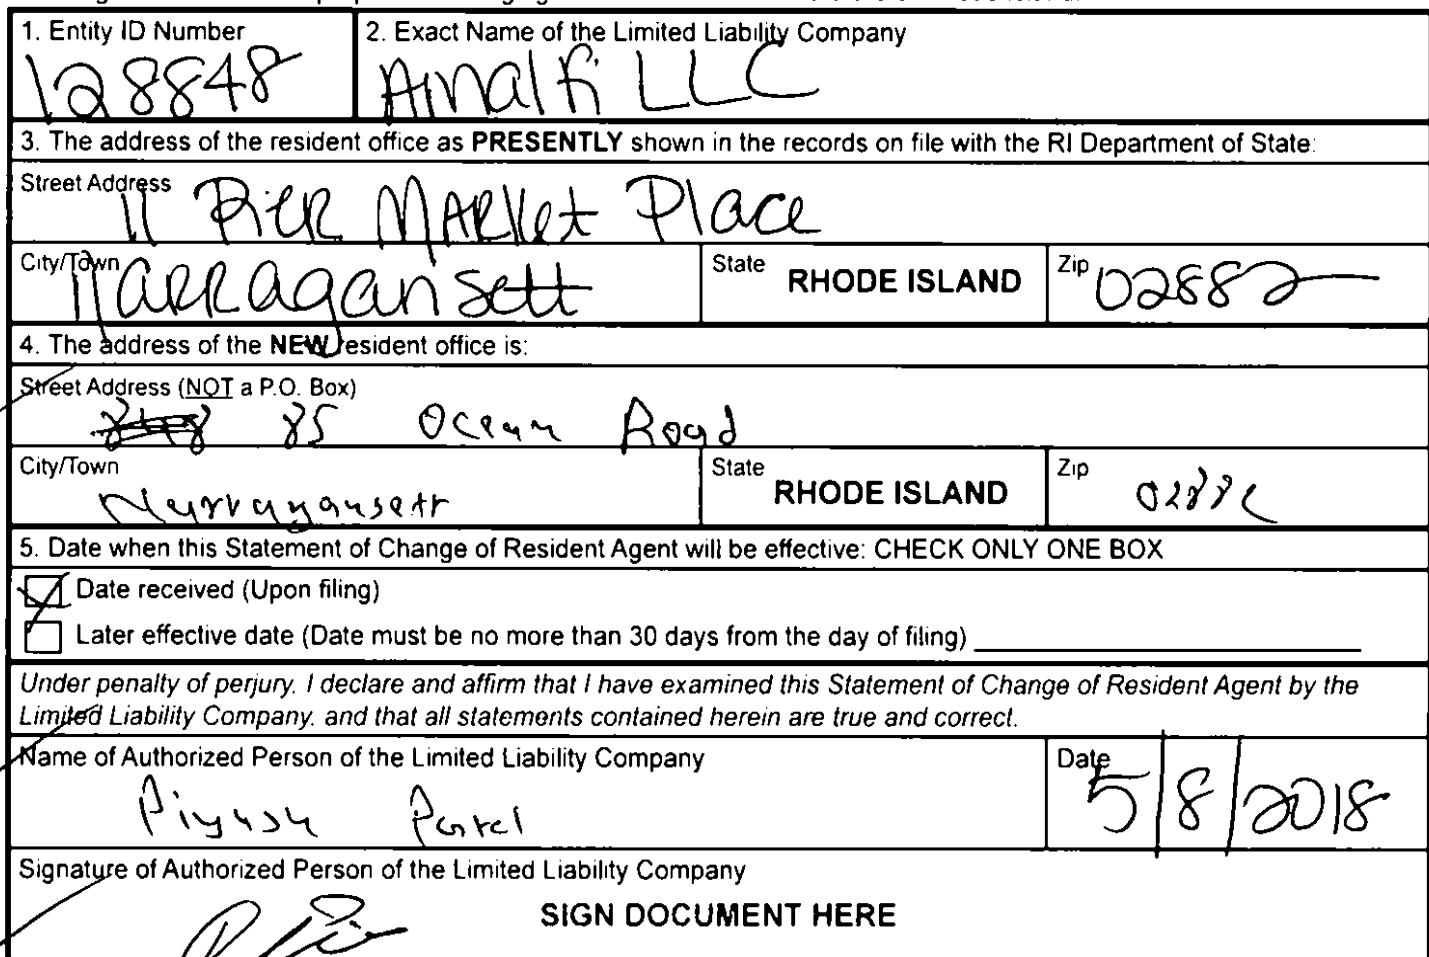 1. Entity ID Number
128848
2. Exact Name of the Limited Liability Company
Amalfi LLC
3. The address of the resident office as PRESENTLY shown in the records on file with the RI Department of State:
Street Address
11 Pier Market Place
City/Town
Narragansett
State RHODE ISLAND
Zip 02882
4. The address of the NEW resident office is:
Street Address (NOT a P.O. Box)
85 Ocean Road
City/Town
Narragansett
State RHODE ISLAND
Zip 02882
5. Date when this Statement of Change of Resident Agent will be effective: CHECK ONLY ONE BOX
Date received (Upon filing)
Later effective date (Date must be no more than 30 days from the day of filing)
Under penalty of perjury, I declare and affirm that I have examined this Statement of Change of Resident Agent by the
Limited Liability Company, and that all statements contained herein are true and correct.
Name of Authorized Person of the Limited Liability Company
Piyush Patel
Date
5/8/2018
Signature of Authorized Person of the Limited Liability Company
SIGN DOCUMENT HERE